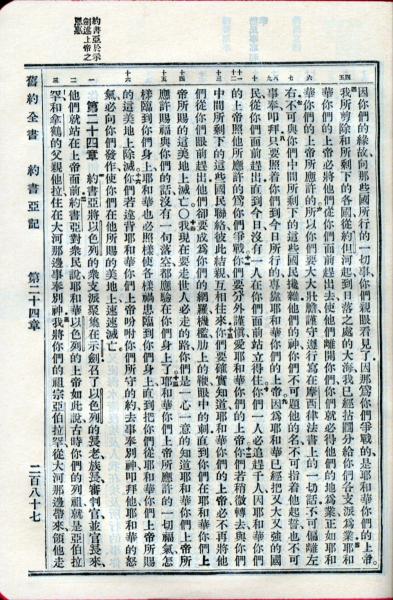 因你們的緣故向那些國所行的一切事、你們親眼看見了、因那爲你們爭戰的是耶和華你們的上帝。
我所剪除和所剩下的各國從約但河起到日落之處的大海我已經拈鬮分給你們各支派爲業耶和
華你們的上帝必將他們從你們面前趕出去使他們離開你們你們就必得他們的地爲業正如耶和
華你們的上帝所應許的所以你們要大大壯膽謹守遵行寫在摩西律法書上的一切話不可偏離左
右不可與你們中間所剩下的這些國民攙雜他們的神你們不可題他的名不可指着他起誓也不可
事奉叩拜只要照着你們到今日所行的專靠耶和華你們的上帝因爲耶和華已經把又大又強的國
民從你們面前趕出直到今日沒有一人在你們面前站立得住你們一人必追趕千人因耶和華你們
的上帝照他所應許的爲你們爭戰你們要分外謹慎愛耶和華你們的上帝你們若稍微轉去與你們
中間所剩下的這些國民聯絡彼此結親互相往來你們要確實知道耶和華你們的上帝必不再將他
們從你們眼前趕出他們卻要成爲你們的網羅機檻肋上的鞭眼中的刺直到你們在耶和華你們上
帝所賜的這美地上滅亡○我現在要走世人必走的路你們是一心一意的知道耶和華你們上帝所
應許賜福與你們的話沒有一句落空都應驗在你們身上了耶和華你們上帝所應許的一切福氣怎
樣臨到你們身上耶和華也必照樣使各樣禍患臨到你們身上直到把你們從耶和華你們上帝所賜
的這美地上除滅你們若違背耶和華你們上帝吩咐你們所守的約去事奉別神叩拜他耶和華的怒
氣必向你們發作使你們在他所賜的美地上速速滅亡
第二十四章 約書亞將以色列的衆支派聚集在示劍召了以色列的長老族長審判官並官長來
他們就站在上帝面前約書亞對衆民說耶和華以色列的上帝如此說古時你們的列祖就是亞伯拉
罕和拿鶴的父親他拉住在大河那邊事奉別神我將你們的祖宗亞伯拉罕從大河那邊帶來領他走
約書亞於示
劍述上帝之
恩惠
舊約全書 約書亞記 第二十四章 二百八十七